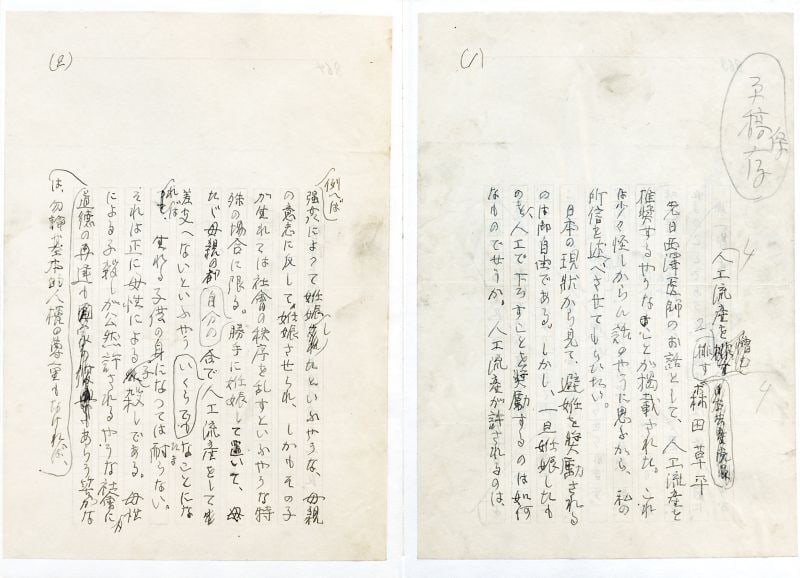 (1)
草稿
保存
人工流産を排す
森田草平
先日西澤医師のお話として、人工流産を
推奨するやうなことが掲載された。これ
は少々怪しからん話のやうに思ふから、私の
所信を述べさせてもらひたい。
日本の現状から見て、避妊を奨励される
のは御自由である。しかし、一旦妊娠したも
のを人工で下ろすことを奨励するのは如何
なものでせうか。人工流産が許されるのは、
(2)
例へば
強姦によつて妊娠したといふやうな、母親
の意志に反して妊娠させられ、しかもその子
が生れては社會の秩序を乱すといふやうな特
殊の場合に限る。勝手に妊娠して置いて、
たゞ母親の自分の都合で人工流産をしても
差支へないといふやうなことにな
れば、生れる子供の身になつては耐らない。
それは正に母性による子殺しである。母性
による子殺しが公然許されるやうな社會に
は、勿論基本的人権の尊重もなければ、
道徳の